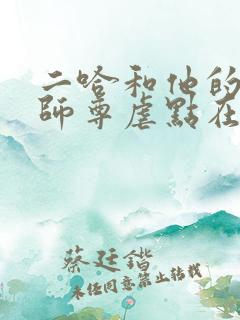 二哈和他的
師尊虐點在
蔡廷鍇
未經同意禁止轉載